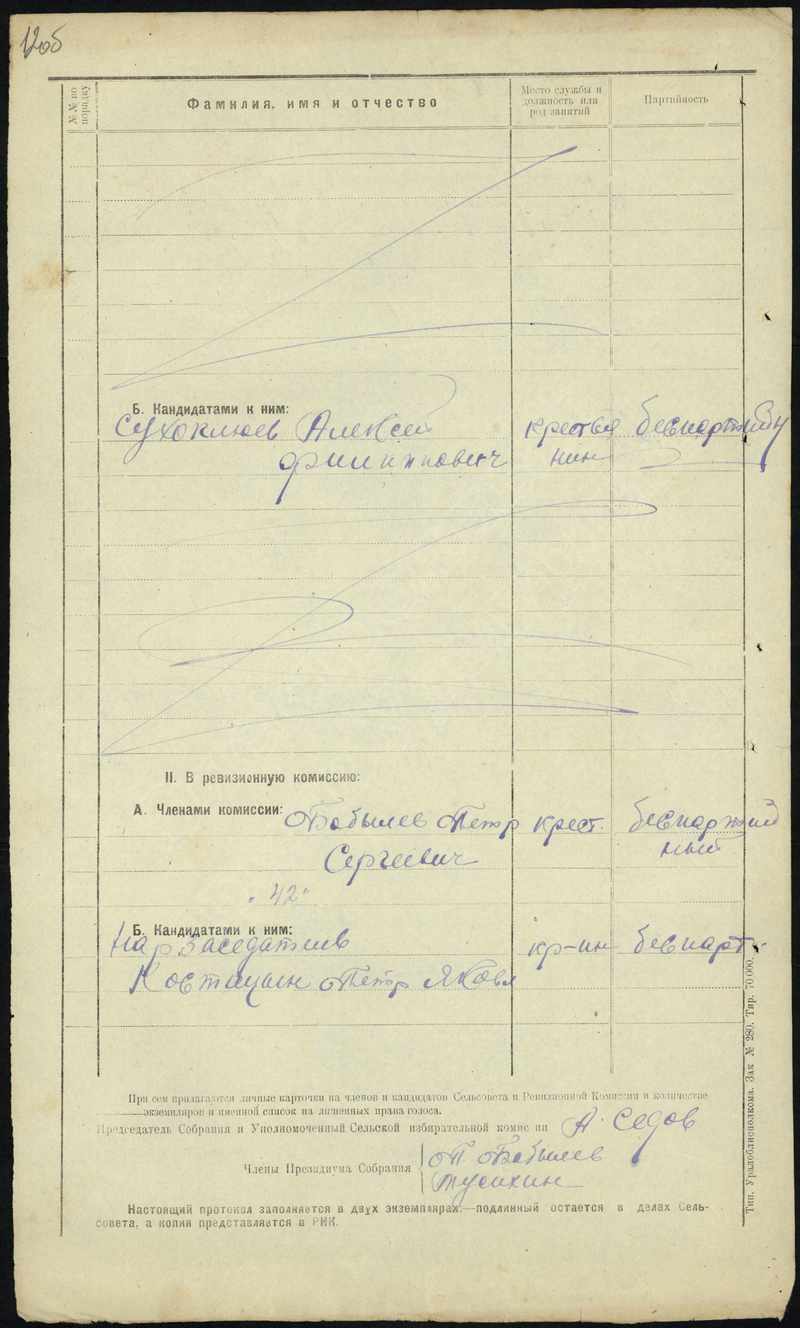 12об
№№ по порядку
Фамилия, имя и отчество
Место службы и должность или род занятий
Партийность
Б. Кандидатами к ним:
Сухоклюев Алексей крестья беспартийн
Филиппович нин
II. В ревизионную комиссию:
А. Членами комиссии: Бобылев Петр крест. беспартий
Сергеевич ный
"42"
Б. Кандидатами к ним:
Нар заседателев кр-ин беспарт.
Костицын Петр Яковл
При сем прилагаются личные карточки на членов и кандидатов Сельсовета и Ревизионной Комиссии в количестве
экземпляров и именной список на лишенных права голоса.
Председатель Собрания и Уполномоченный Сельской избирательной комиссии А. Седов
Члены Президиума Собрания П. Бобылев
Настоящий протокол заполняется в двух экземплярах:—подлинный остается в делах Сель-
совета, а копия представляется в РИК.
Тип. Уралоблисполкома. Зак № 280. Тир. 70 000.